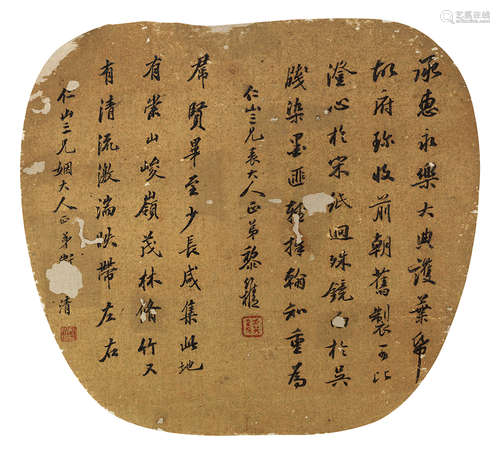 承惠永樂大典護葉命
胡府珎收前朝舊製可比
澄心於宋紙迥殊鏡於吳
牋染墨匪輕揮翰知重為
仁山三兄表大人正弟黎
羣賢畢至少長咸集此地
有崇山峻嶺茂林脩竹又
有清流激湍映帶左右
仁山三兄姻大人正弟清